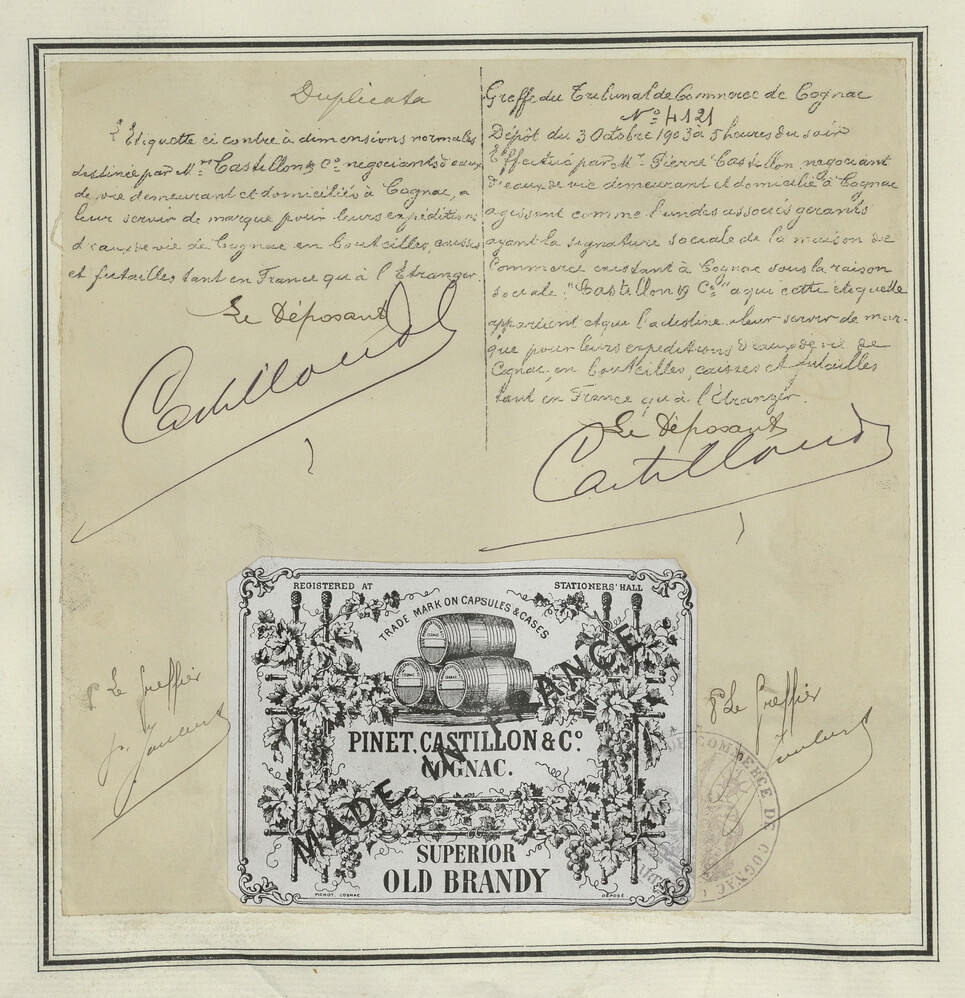 Duplicata
L'Etiquette ci contre à dimensions normales
destinée par Mrs Castillon & Co négociants d'eaux
de vie demeurant et domiciliés à Cognac, a
leur servir de marque pour leurs expéditions
d'eaux de vie de Cognac en bouteilles, caisses
et futailles tant en France qu'à l'Etranger
Le Déposant
Castillon
Greffe du Tribunal de Commerce de Cognac
No 4121
Dépôt du 3 Octobre 1903 à 5 heures du soir
Effectué par Mr Pierre Castillon négociant
d'eaux de vie demeurant et domicilié à Cognac
agissant comme l'un des associés gérants
ayant la signature sociale de la maison de
Commerce existant à Cognac sous la raison
sociale "Castillon & Co" a qui cette étiquette
appartient et qui l'a destine a leur servir de mar-
que pour leurs expéditions d'eaux de vie de
Cognac, en bouteilles, caisses et futailles
tant en France qu'à l'étranger.
Le Déposant
Castillon
REGISTERED AT STATIONERS' HALL
TRADE MARK ON CAPSULES & CASES
COGNAC
COGNAC
COGNAC
PINET, CASTILLON & Co
COGNAC.
MADE IN FRANCE
SUPERIOR
OLD BRANDY
PICHOT COGNAC DÉPOSÉ
Pr Le Greffier
Pr Le Greffier
DE COMMERCE DE COGNAC